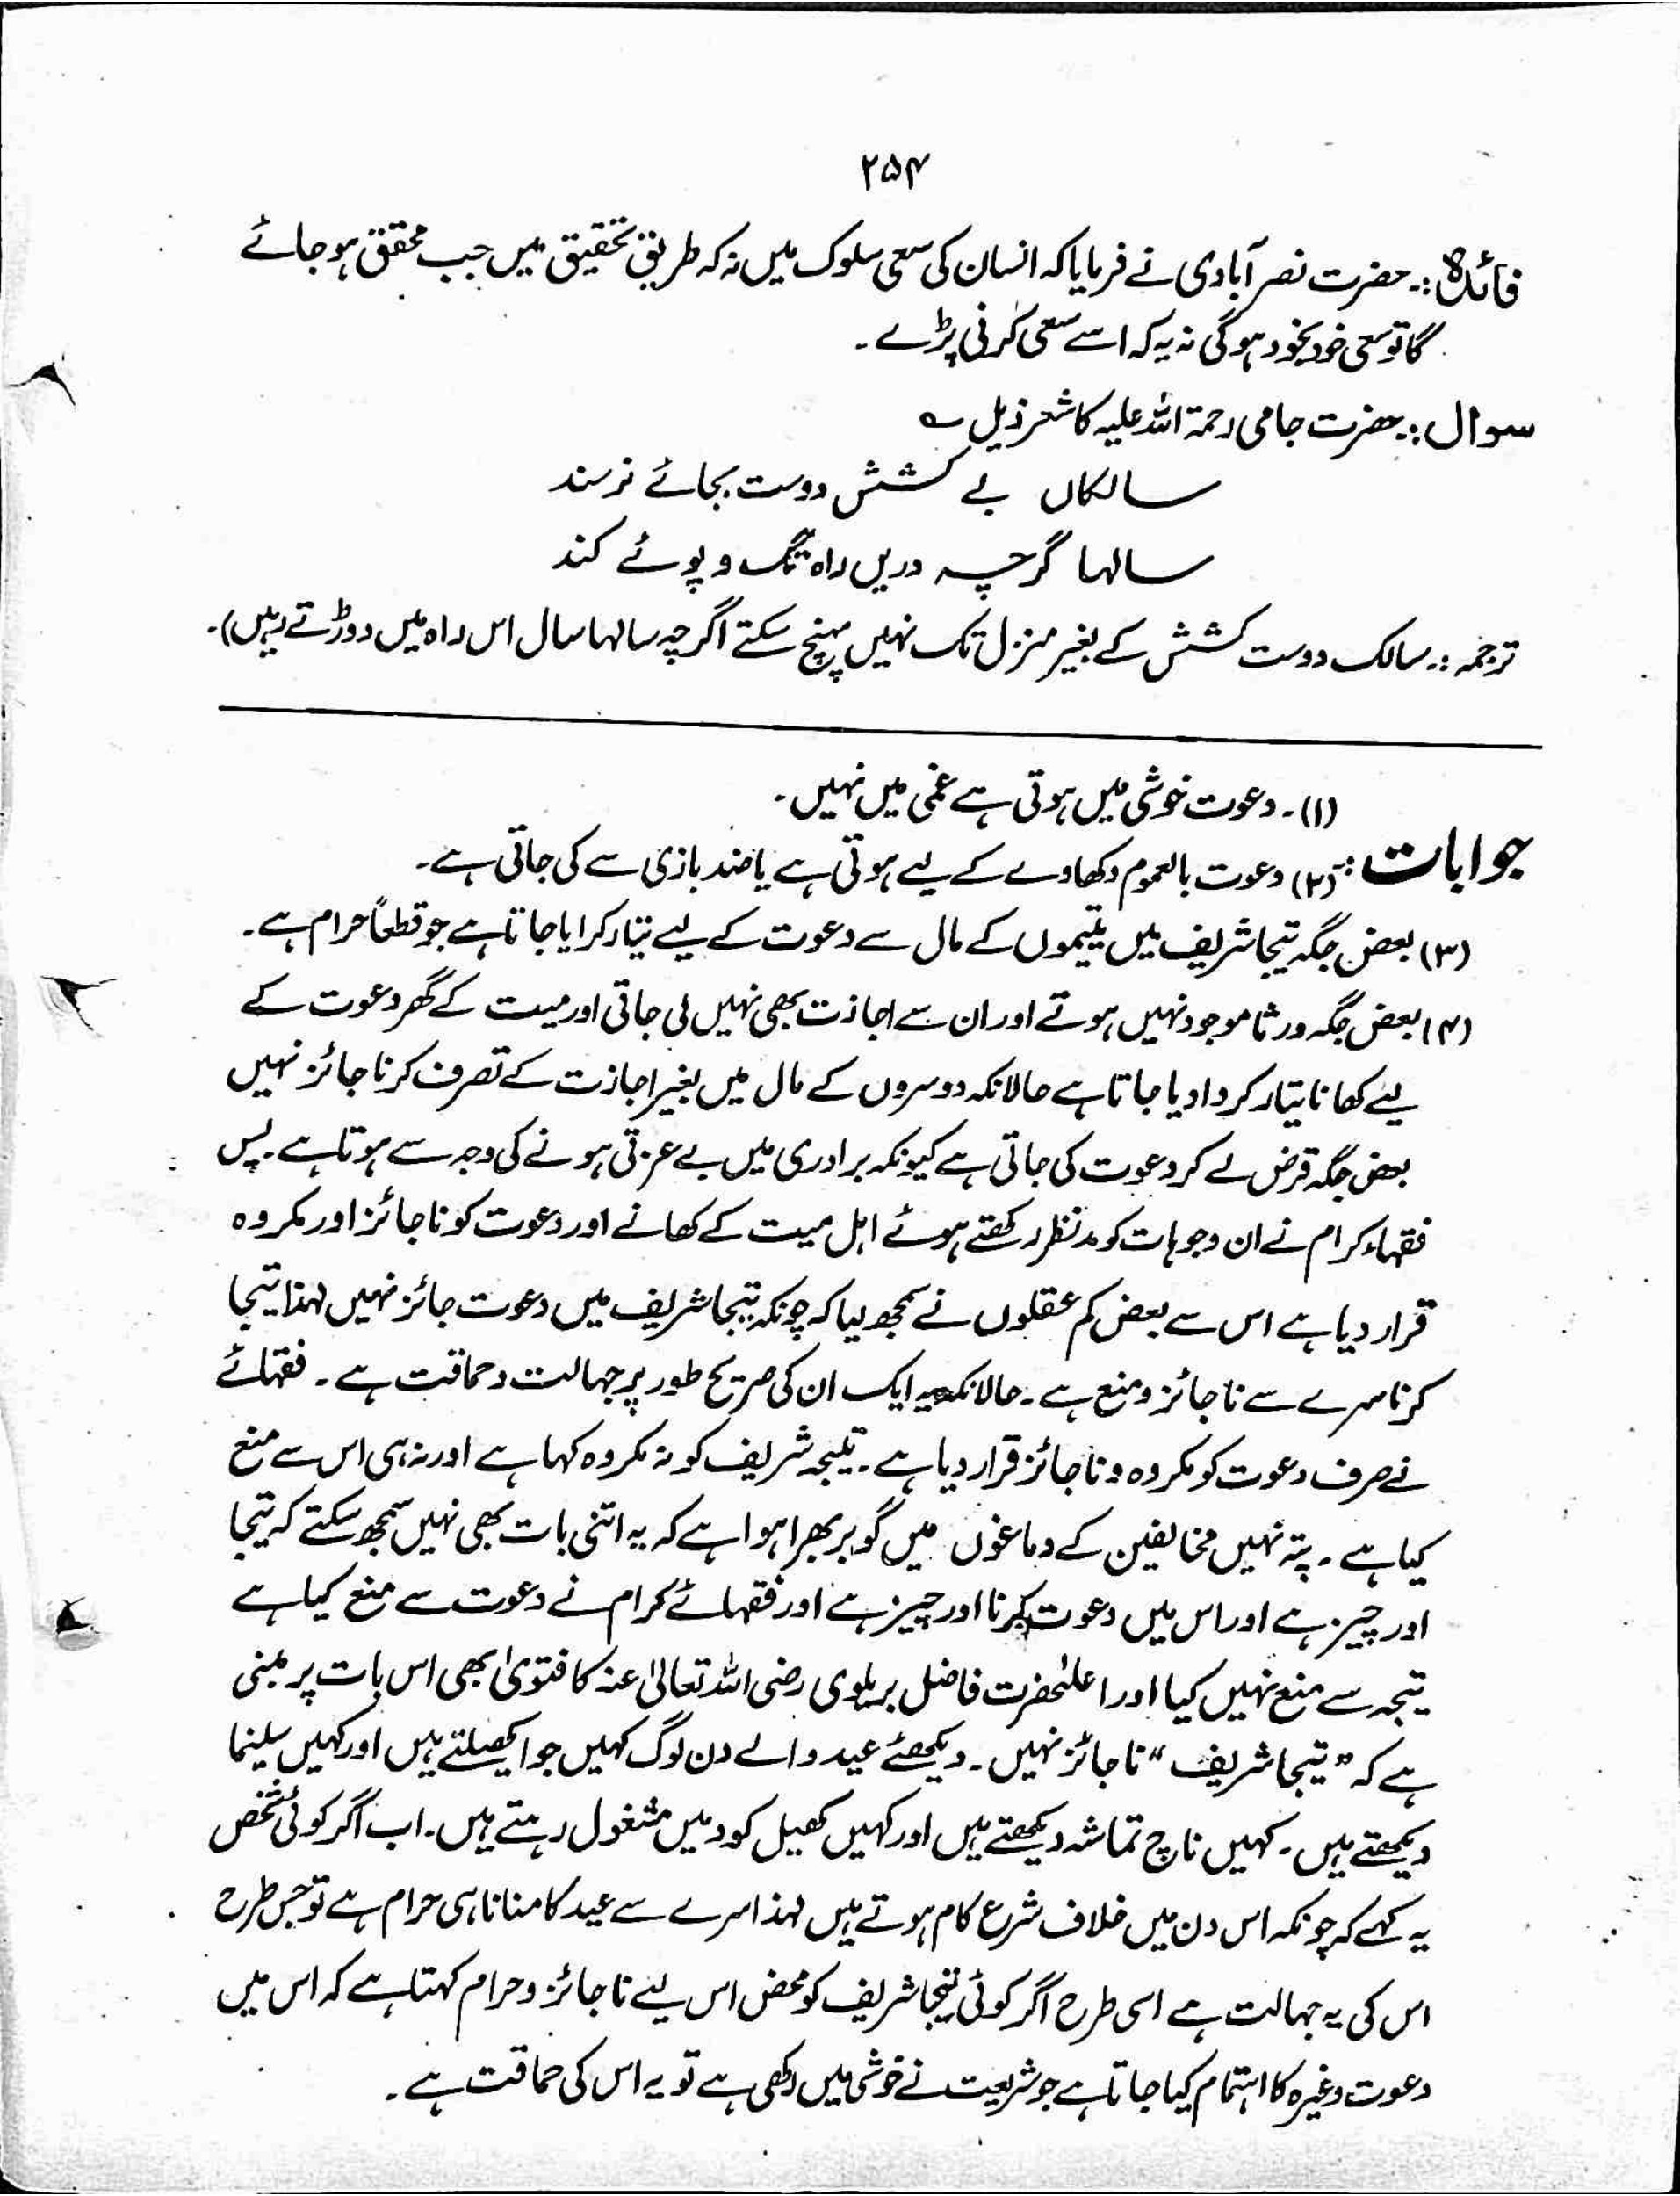 ۲۵۴
فائدہ :۔ حضرت نصر آبادی نے فرمایا کہ انسان کی سعی سلوک میں نہ کہ طریق تحقیق میں جب محقق ہو جائے
گا تو سعی خود بخود ہو گی نہ یہ کہ اسے سعی کرنی پڑے ۔
سوال :۔ حضرت جامی رحمۃ اللہ علیہ کا شعر ذیل ؎
سالکاں بے کشش دوست بجائے نرسند
سالہا گرچہ دریں راہ تگ و پوئے کند
ترجمہ :۔ سالک دوست کشش کے بغیر منزل تک نہیں پہنچ سکتے اگرچہ سالہا سال اس راہ میں دوڑتے رہیں)۔
(۱)۔ دعوت خوشی میں ہوتی ہے غمی میں نہیں ۔
جوابات :۔ (۲) دعوت بالعموم دکھاوے کے لیے ہوتی ہے یا ضد بازی سے کی جاتی ہے۔
(۳) بعض جگہ تیجا شریف میں یتیموں کے مال سے دعوت کے لیے تیار کرایا جاتا ہے جو قطعاً حرام ہے۔
(۴) بعض جگہ ورثا موجود نہیں ہوتے اور ان سے اجازت بھی نہیں لی جاتی اور میت کے گھر دعوت کے
لیے کھانا تیار کردا دیا جاتا ہے حالانکہ دوسروں کے مال میں بغیر اجازت کے تصرف کرنا جائز نہیں
بعض جگہ قرض لے کر دعوت کی جاتی ہے کیونکہ برادری میں بے عزتی ہونے کی وجہ سے ہوتا ہے ۔ پس
فقہاء کرام نے ان وجوہات کو مدنظر رکھتے ہوئے اہل میت کے کھانے اور دعوت کو ناجائز اور مکروہ
قرار دیا ہے اس سے بعض کم عقلوں نے سمجھ لیا کہ چونکہ تیجا شریف میں دعوت جائز نہیں لہذا تیجا
کرنا سرے سے ناجائز و منع ہے ۔ حالانکہ یہ ایک ان کی صریح طور پر جہالت و حماقت ہے ۔ فقہائے
نے صرف دعوت کو مکروہ و ناجائز قرار دیا ہے ۔ تیجہ شریف کو نہ مکروہ کہا ہے اور نہ ہی اس سے منع
کیا ہے ۔ پتہ نہیں مخالفین کے دماغوں میں گوبر بھرا ہوا ہے کہ یہ اتنی بات بھی نہیں سمجھ سکتے کہ تیجا
اور چیز ہے اور اس میں دعوت کرنا اور چیز ہے اور فقہائے کرام نے دعوت سے منع کیا ہے
تیجہ سے منع نہیں کیا اور اعلٰحضرت فاضل بریلوی رضی اللہ تعالیٰ عنہ کا فتویٰ بھی اس بات پر مبنی
ہے کہ "تیجا شریف" ناجائز نہیں ۔ دیکھئے عید والے دن لوگ کہیں جوا کھیلتے ہیں اور کہیں سینما
دیکھتے ہیں ۔ کہیں ناچ تماشہ دیکھتے ہیں اور کہیں کھیل کود میں مشغول رہتے ہیں ۔ اب اگر کوئی شخص
یہ کہے کہ چونکہ اس دن میں خلاف شرع کام ہوتے ہیں لہذا سرے سے عید کا منانا ہی حرام ہے تو جس طرح
اس کی یہ جہالت ہے اسی طرح اگر کوئی تیجا شریف کو محض اس لیے ناجائز و حرام کہتا ہے کہ اس میں
دعوت وغیرہ کا اہتمام کیا جاتا ہے جو شریعت نے خوشی میں رکھی ہے تو یہ اس کی حماقت ہے ۔